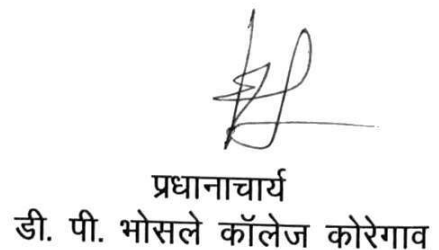 प्रधानाचार्य
डी. पी. भोसले कॉलेज कोरेगाव